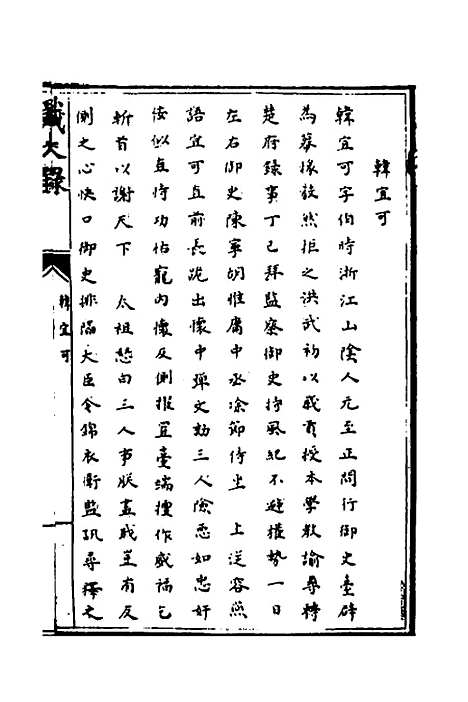 韓宜可
韓宜可字伯時浙江山陰人元至正間行御史臺辟
為掾毅然拒之洪武初以薦授本學教諭尋轉
楚府錄事丁巳拜監察御史持風紀不避權勢一日
左右御史陳寧胡惟庸中丞凃節侍坐 上從容燕
語宜可直前長跪出懷中彈文劾三人險惡如忠奸
佞似直恃功怙寵內懷反側擢置臺端擅作威福乞
斬首以謝天下 太祖
三人事朕盡
豈有反
側之心快口御史排陷大臣令錦衣衛監訊尋釋之
大錄
韓宜可